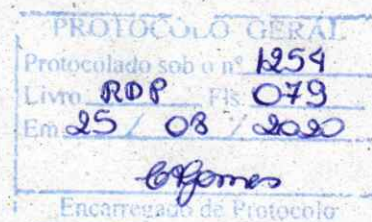 PROTOCOLO GERAL
Protocolado sob o nº 1254
Livro RDP Fls. 079
Em 25 / 08 / 2020
CGomes
Encarregado de Protocolo